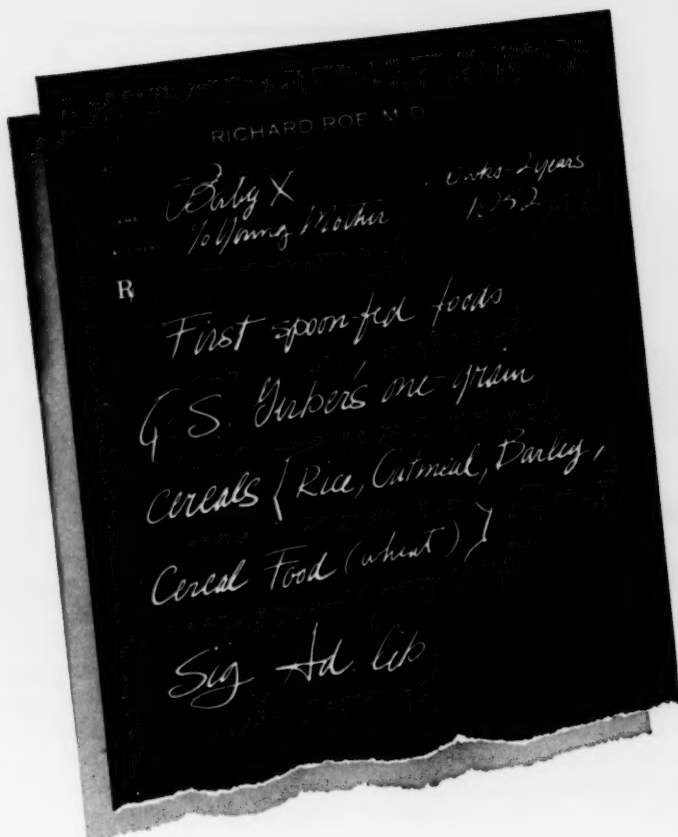 RICHARD ROE M D
Baby X
% Young Mother 1952
R
First spoon-fed foods
G. S. Gerber's one-grain
cereals { Rice, Oatmeal, Barley,
Cereal Food (wheat) }
Sig Ad lib